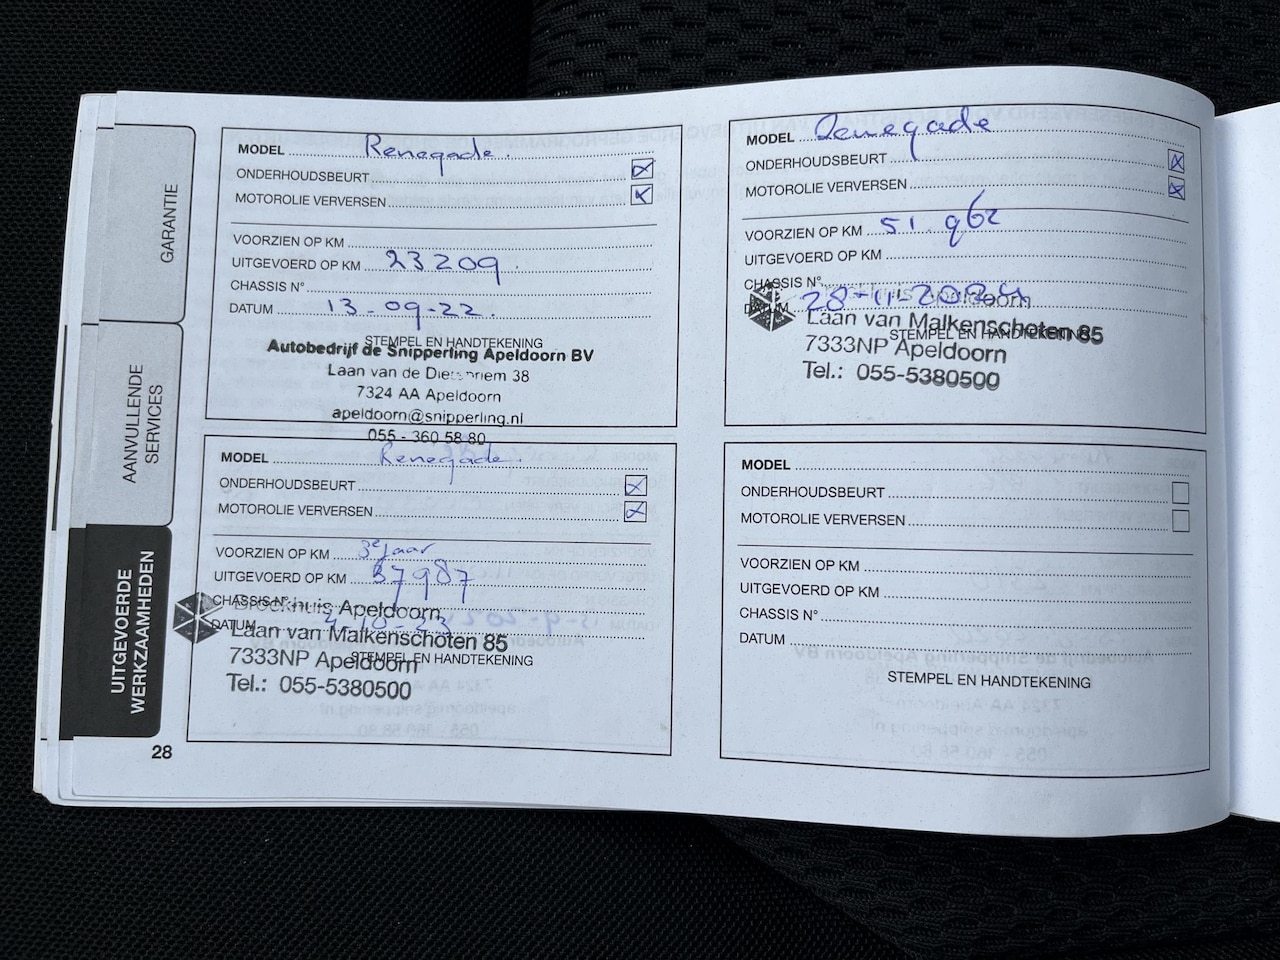 GARANTIE
AANVULLENDE
SERVICES
UITGEVOERDE
WERKZAAMHEDEN
MODEL Renegade.
ONDERHOUDSBEURT
MOTOROLIE VERVERSEN
VOORZIEN OP KM
UITGEVOERD OP KM 23209.
CHASSIS N°
DATUM 13-09-22.
STEMPEL EN HANDTEKENING
Autobedrijf de Snipperling Apeldoorn BV
Laan van de Dierenriem 38
7324 AA Apeldoorn
apeldoorn@snipperling.nl
055 - 360 58 80
MODEL Renegade.
ONDERHOUDSBEURT
MOTOROLIE VERVERSEN
VOORZIEN OP KM 3e jaar
UITGEVOERD OP KM 37987
CHASSIS N°
Brockhuis Apeldoorn
DATUM 4-10-23
Laan van Malkenschoten 85
STEMPEL EN HANDTEKENING
7333NP Apeldoorn
Tel.: 055-5380500
28
MODEL Renegade
ONDERHOUDSBEURT
MOTOROLIE VERVERSEN
VOORZIEN OP KM 51.962
UITGEVOERD OP KM
CHASSIS N°
DATUM 28-11-2024
Apeldoorn
Laan van Malkenschoten 85
STEMPEL EN HANDTEKENING
7333NP Apeldoorn
Tel.: 055-5380500
MODEL
ONDERHOUDSBEURT
MOTOROLIE VERVERSEN
VOORZIEN OP KM
UITGEVOERD OP KM
CHASSIS N°
DATUM
STEMPEL EN HANDTEKENING